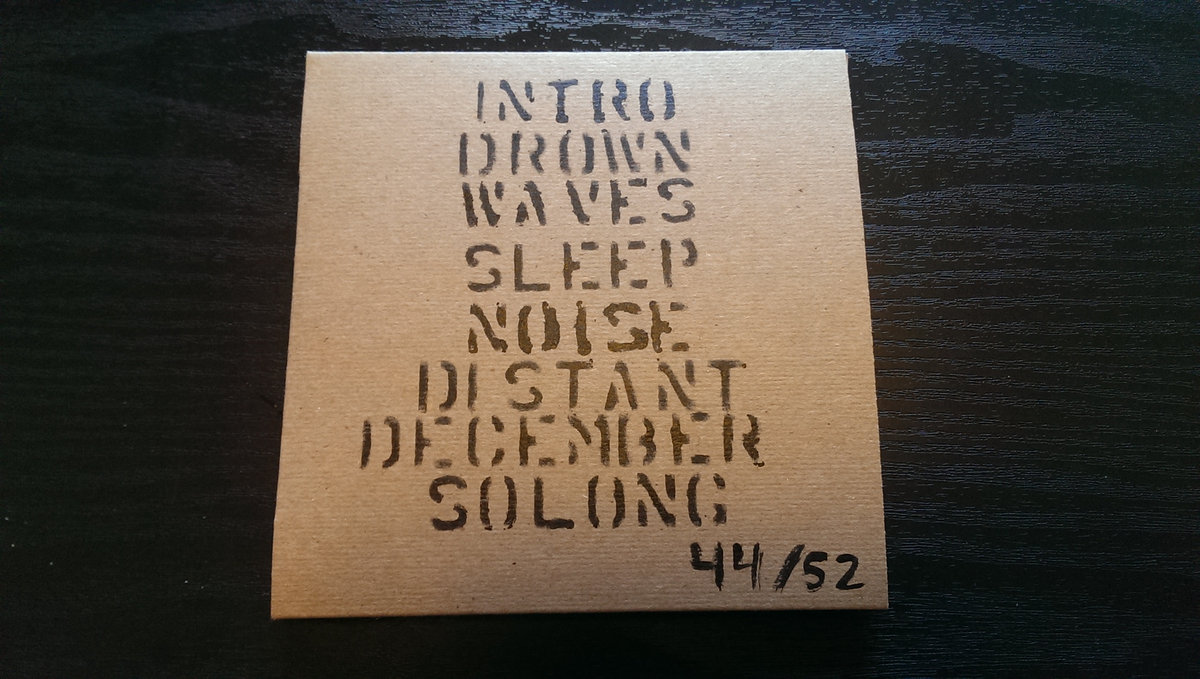 INTRO
DROWN
WAVES
SLEEP
NOISE
DISTANT
DECEMBER
SOLONG
44/52